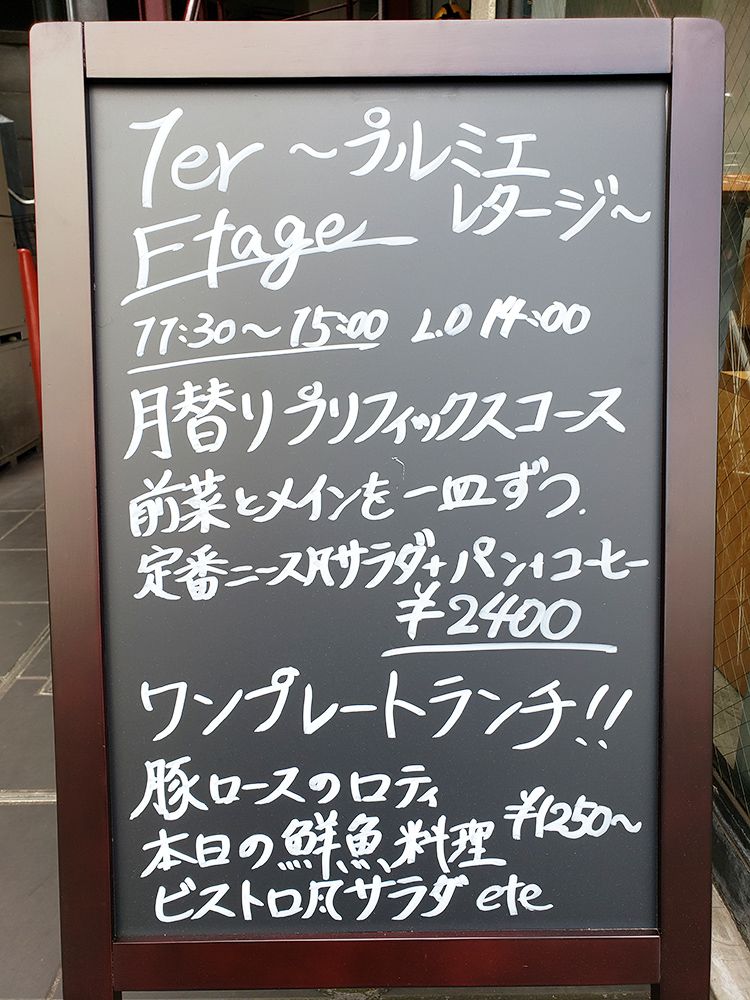 1er ～プルミエ
Etage レタージ～
11:30～15:00 L.O 14:00
月替りプリフィックスコース
前菜とメインを一皿ずつ.
定番ニース风サラダ+パン+コーヒー
¥2400
ワンプレートランチ!!
豚ロースのロティ
本日の鮮魚料理 ¥1250～
ビストロ风サラダ ete